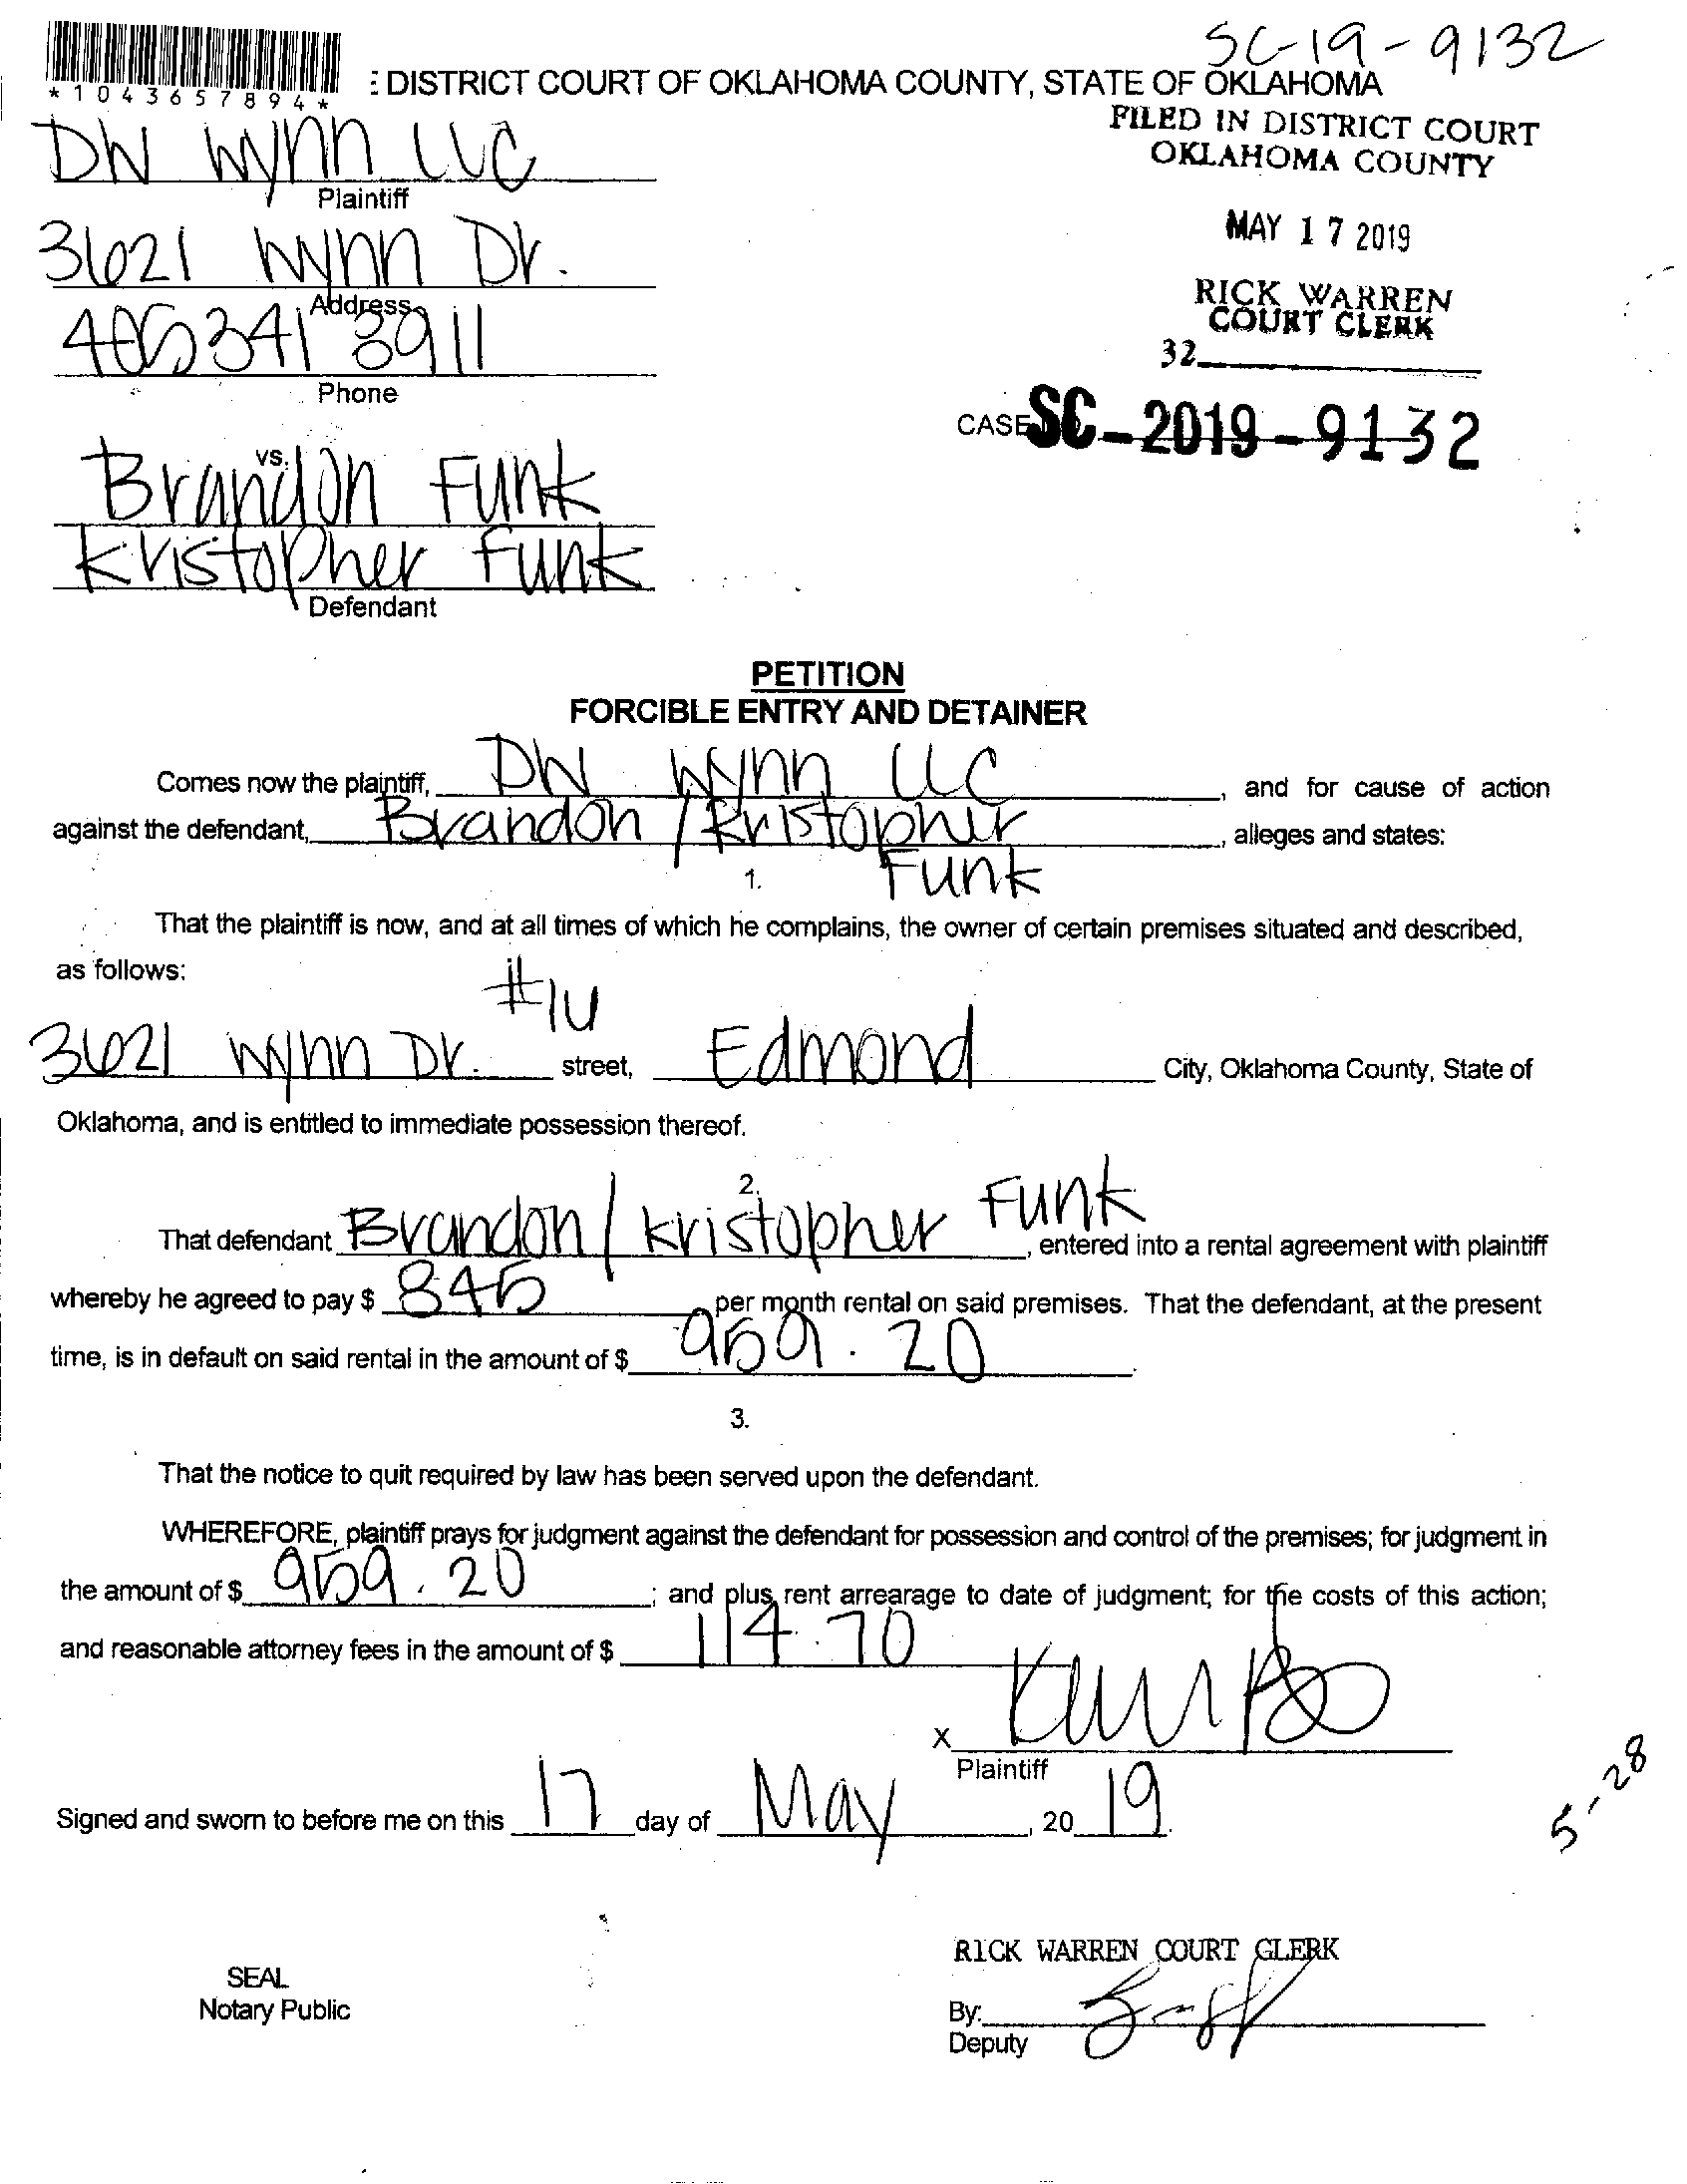 SC-19-9132
*1043657894*
E DISTRICT COURT OF OKLAHOMA COUNTY, STATE OF OKLAHOMA
FILED IN DISTRICT COURT
OKLAHOMA COUNTY
DW Wynn LLC
Plaintiff
MAY 17 2019
3621 Wynn Dr.
Address
RICK WARREN
COURT CLERK
405 341 3911
32
Phone
CASE SC-2019-9132
vs.
Brandon Funk
Kristopher Funk
Defendant
PETITION
FORCIBLE ENTRY AND DETAINER
Comes now the plaintiff, DW Wynn LLC, and for cause of action
against the defendant, Brandon / Kristopher, alleges and states:
Funk
1.
That the plaintiff is now, and at all times of which he complains, the owner of certain premises situated and described,
as follows:
#1U
3621 Wynn Dr. street, Edmond City, Oklahoma County, State of
Oklahoma, and is entitled to immediate possession thereof.
2.
That defendant Brandon / Kristopher Funk, entered into a rental agreement with plaintiff
whereby he agreed to pay $ 845 per month rental on said premises. That the defendant, at the present
time, is in default on said rental in the amount of $ 959.20.
3.
That the notice to quit required by law has been served upon the defendant.
WHEREFORE, plaintiff prays for judgment against the defendant for possession and control of the premises; for judgment in
the amount of $ 959.20; and plus rent arrearage to date of judgment; for the costs of this action;
and reasonable attorney fees in the amount of $ 114.70
X
Plaintiff
Signed and sworn to before me on this 17 day of May, 2019.
5-28
RICK WARREN COURT CLERK
SEAL
Notary Public
By:
Deputy